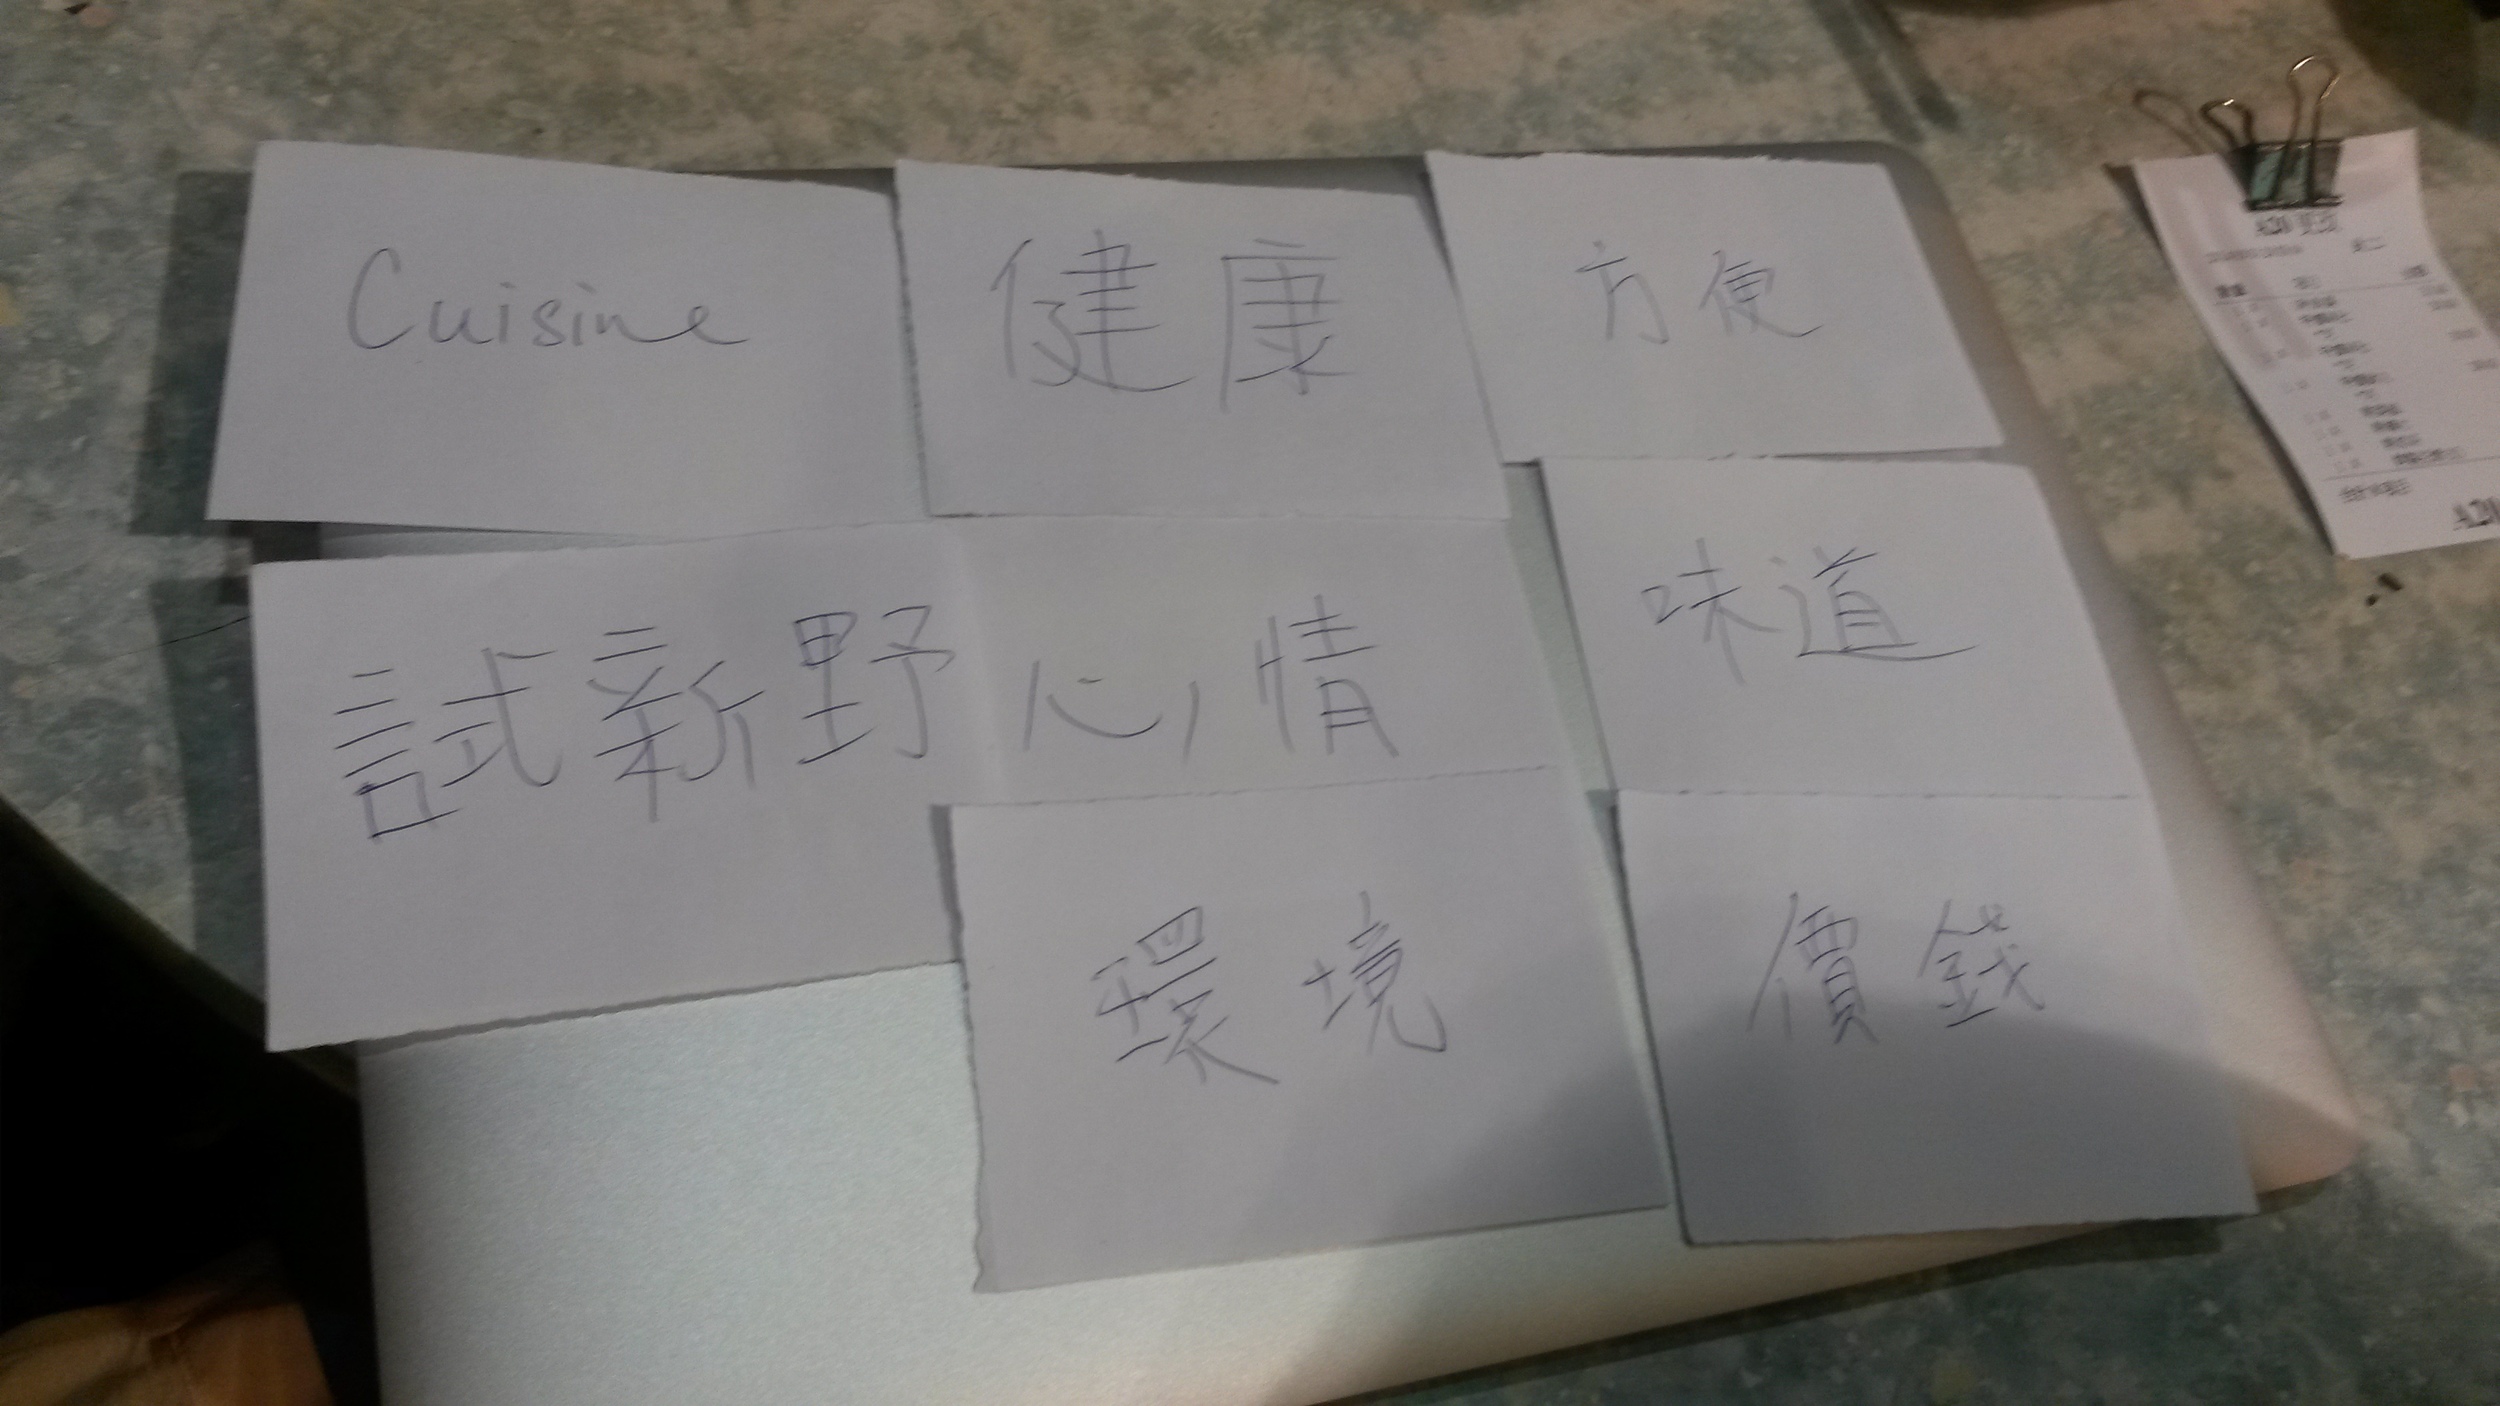 Cuisine
健康
方便
試新野
心情
味道
環境
價錢